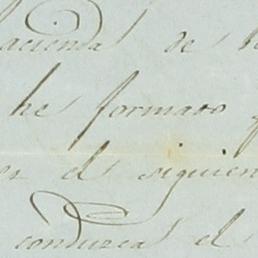 hacienda de
he formado
en el siguien
conduzca el